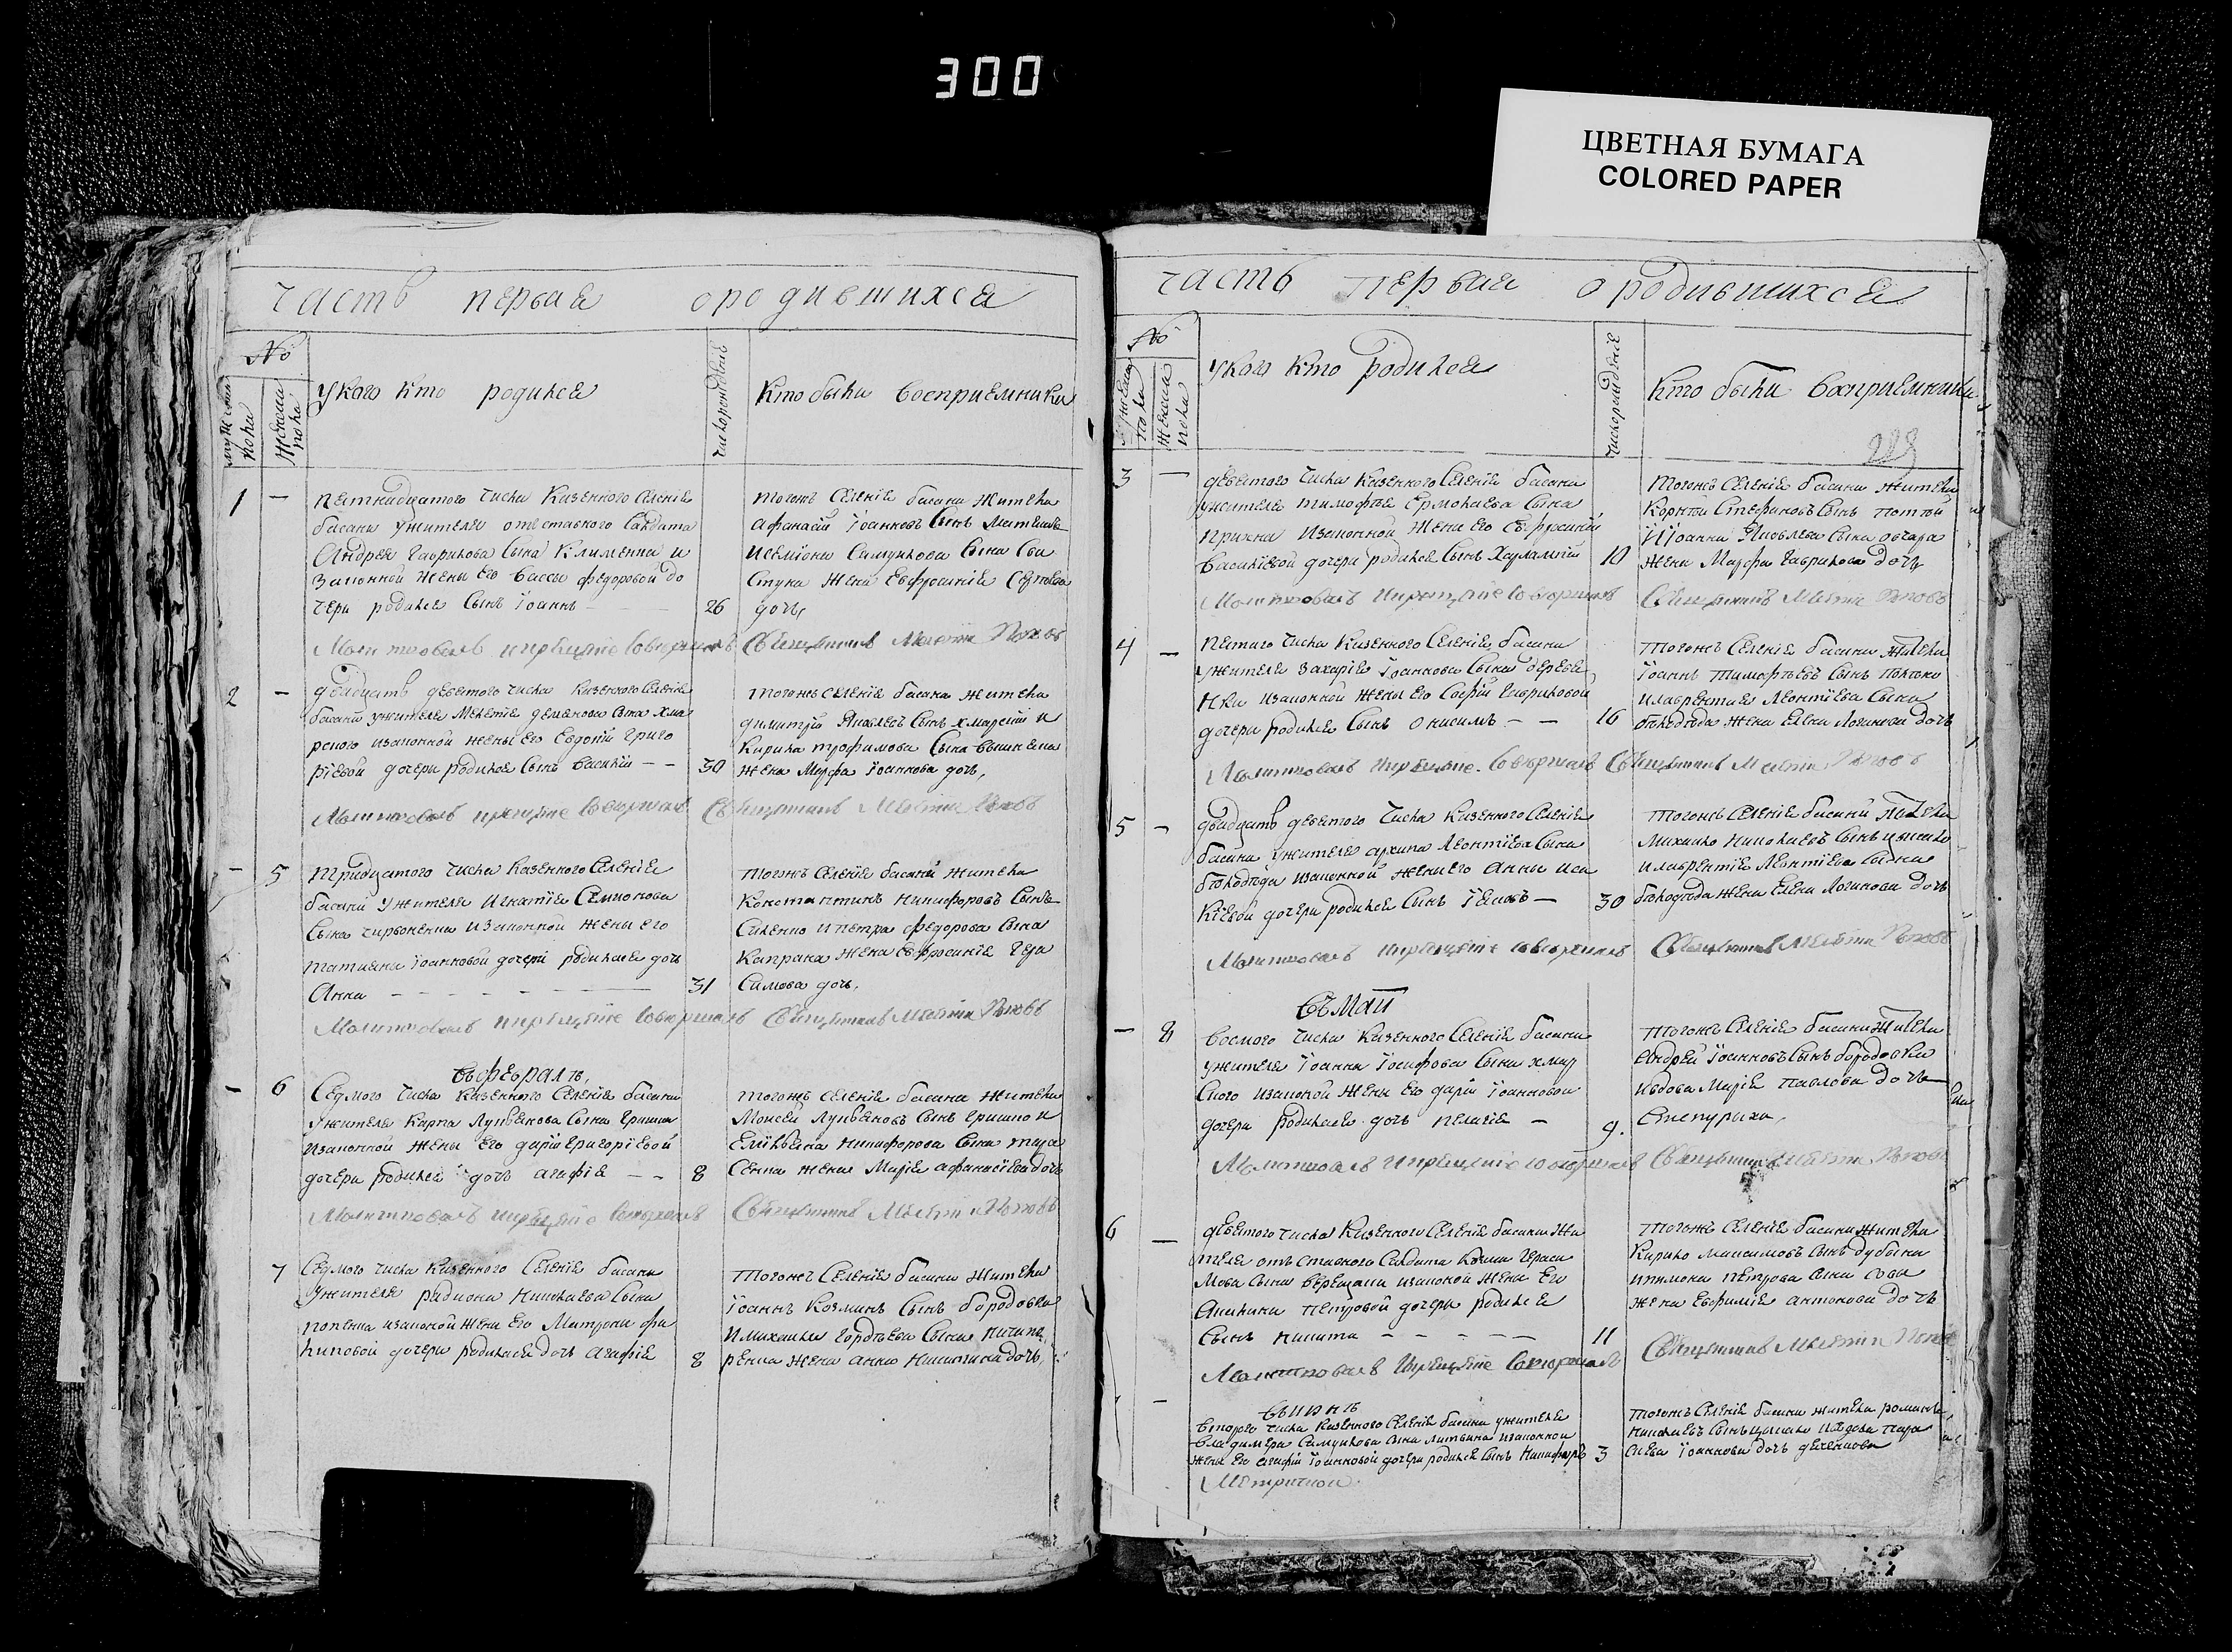 300
ЦВЕТНАЯ БУМАГА
COLORED PAPER
часть первая о родившихся
№
мужеска пола
женска пола
У кого кто родился
число рождения
Кто были восприемники
1 —
пятнадцатого числа Казенного Селения
басани ужителя отставного Салдата
Андрея Гаврилова Сына Клименка и
Законной жены Его Вассы федоровой до
чери родился Сынъ Іоаннъ — 26
тогожъ Селения басани жители
афанасій Іоанновъ Сынъ
Самуилова Сына
жена Евфросиния
дочь,
Молитвовалъ и крещение Совершалъ Священникъ Поповъ
2 —
двадцать девятого числа Казенного Селения
басани ужителя Мелетия Семенова Сына хма
рского изаконной жены Его Евдокии Григо
ріевой дочери родился Сынъ Василій — — 30
тогожъ селения басани жители
димитрій Яковлевъ Сынъ хмарскій и
Кирила трофимова Сына
жена Марфа Іоаннова дочь,
Молитвовалъ и крещение Совершалъ Священникъ Поповъ
— 5
Тридцатого числа Казенного Селения
басани ужителя Игнатия Семионова
Сына червоненка изаконной жены его
татианы Іоанновой дочери родилася дочь
Анна — 31
тогожъ Селения басани жители
Константинъ Никифоровъ Сынъ
Силенко и петра федорова Сына
Капрана жена Евфросиния Гера
симова дочь.
Молитвовалъ и крещение Совершалъ Священникъ Поповъ
въ февралѣ,
— 6
Седмого числа Казенного Селения басани
ужителя Карпа Лукьянова Сына Гришка
изаконной жены Его дарии Григоріевой
дочери родилася дочь агафия — — 8
тогожъ селения басани жители
Моисей Лукьяновъ Сынъ Гришко и
Никифорова Сына
жена Мария афанасіева дочь
Молитвовалъ и крещение Совершалъ Священникъ Поповъ
7
Седмого числа Казенного Селения басани
ужителя радиона Николаева Сына
попенка изаконой жены Его Матроны фи
липовой дочери родилася дочь агафия 8
тогожъ Селения басани жители
Іоаннъ Козминъ Сынъ бородовка
и михаила Гордѣева Сына ничипо
ренка жена анна Никитина дочь
часть первая о родившихся
№
мужеска пола
женска пола
У кого кто родился
число рождения
Кто были восприемники
3 —
девятого числа Казенного Селения басани
ужителя тимофѣя Ермолаева Сына
изаконной жены Его Евфросинии
Василіевой дочери родился Сынъ Харлампій 10
тогожъ Селения басани жители
Стефановъ Сынъ
и Іоанна Яковлева Сына овчара
жена Марфа Гаврилова дочь
Молитвовалъ и крещение Совершалъ Священникъ Поповъ
4 —
пятаго числа Казенного Селения басани
ужителя Захария Іоаннова Сына
изаконной жены Его Софии Гавриловой
дочери родился Сынъ Онисимъ — — 16
тогожъ Селения басани жители
Іоаннъ тимофѣевъ Сынъ
и лаврентия Леонтіева Сына
бѣлодѣда жена Елена Логинова дочь
Молитвовалъ и крещение Совершалъ Священникъ Поповъ
5 —
двадцать девятого числа Казенного Селения
басани ужителя архипа Леонтіева Сына
бѣлодѣда изаконной жены его Анны Иса
кіевой дочери родился Сынъ Іаковъ — 30
тогожъ Селения басани жители
Михаило Николаевъ Сынъ
и лаврентия Леонтіева Сына
бѣлодѣда жена Елена Логинова дочь
Молитвовалъ и крещение Совершалъ Священникъ Поповъ
въ маи
— 8
восмого числа Казенного Селения басани
ужителя Іоанна Іосифова Сына хмар
ского изаконой жены Его дарии Іоанновой
дочери родилася дочь пелагия — 9.
тогожъ Селения басани жители
андрей Іоанновъ Сынъ бородовка
и вдова Мария павлова дочь
Молитвовалъ и крещение Совершалъ Священникъ Поповъ
6 —
девятого числа Казенного Селения басани жи
теля отставного Салдата Козмы Гераси
мова Сына верещаки изаконой жены Его
Акилины петровой дочери родился
Сынъ никита — 11
тогожъ Селения басани жители
Кирило максимовъ Сынъ
петрова Сына
жена Евфимия антонова дочь
Молитвовалъ и крещение Совершалъ Священникъ
въ июнѣ
второго числа Казенного Селения басани ужителя
владимера Самуилова Сына литвина изаконной
жены Его агафии Іоанновой дочери родился Сынъ Никифоръ 3
тогожъ Селения басани жители романъ
Николаевъ Сынъ и вдова пара
скева Іоаннова дочь